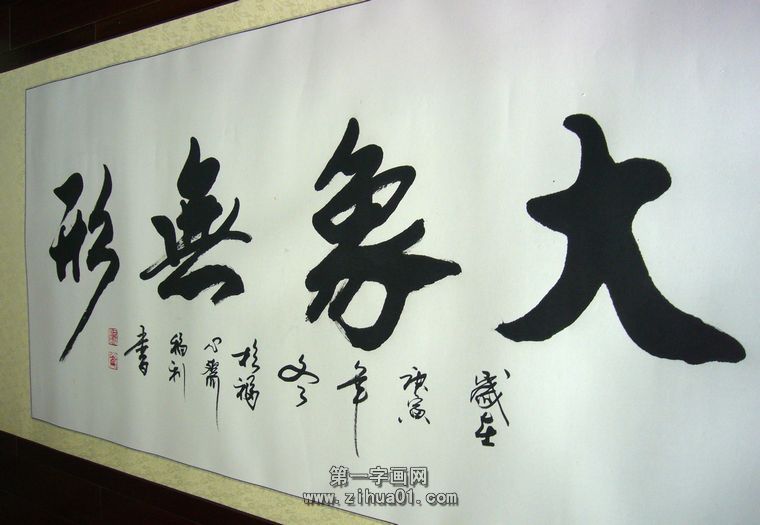 大象無形
歲在
庚寅
年
冬
於福
心齋
福利
書
第一字画网
www.zihua01.com